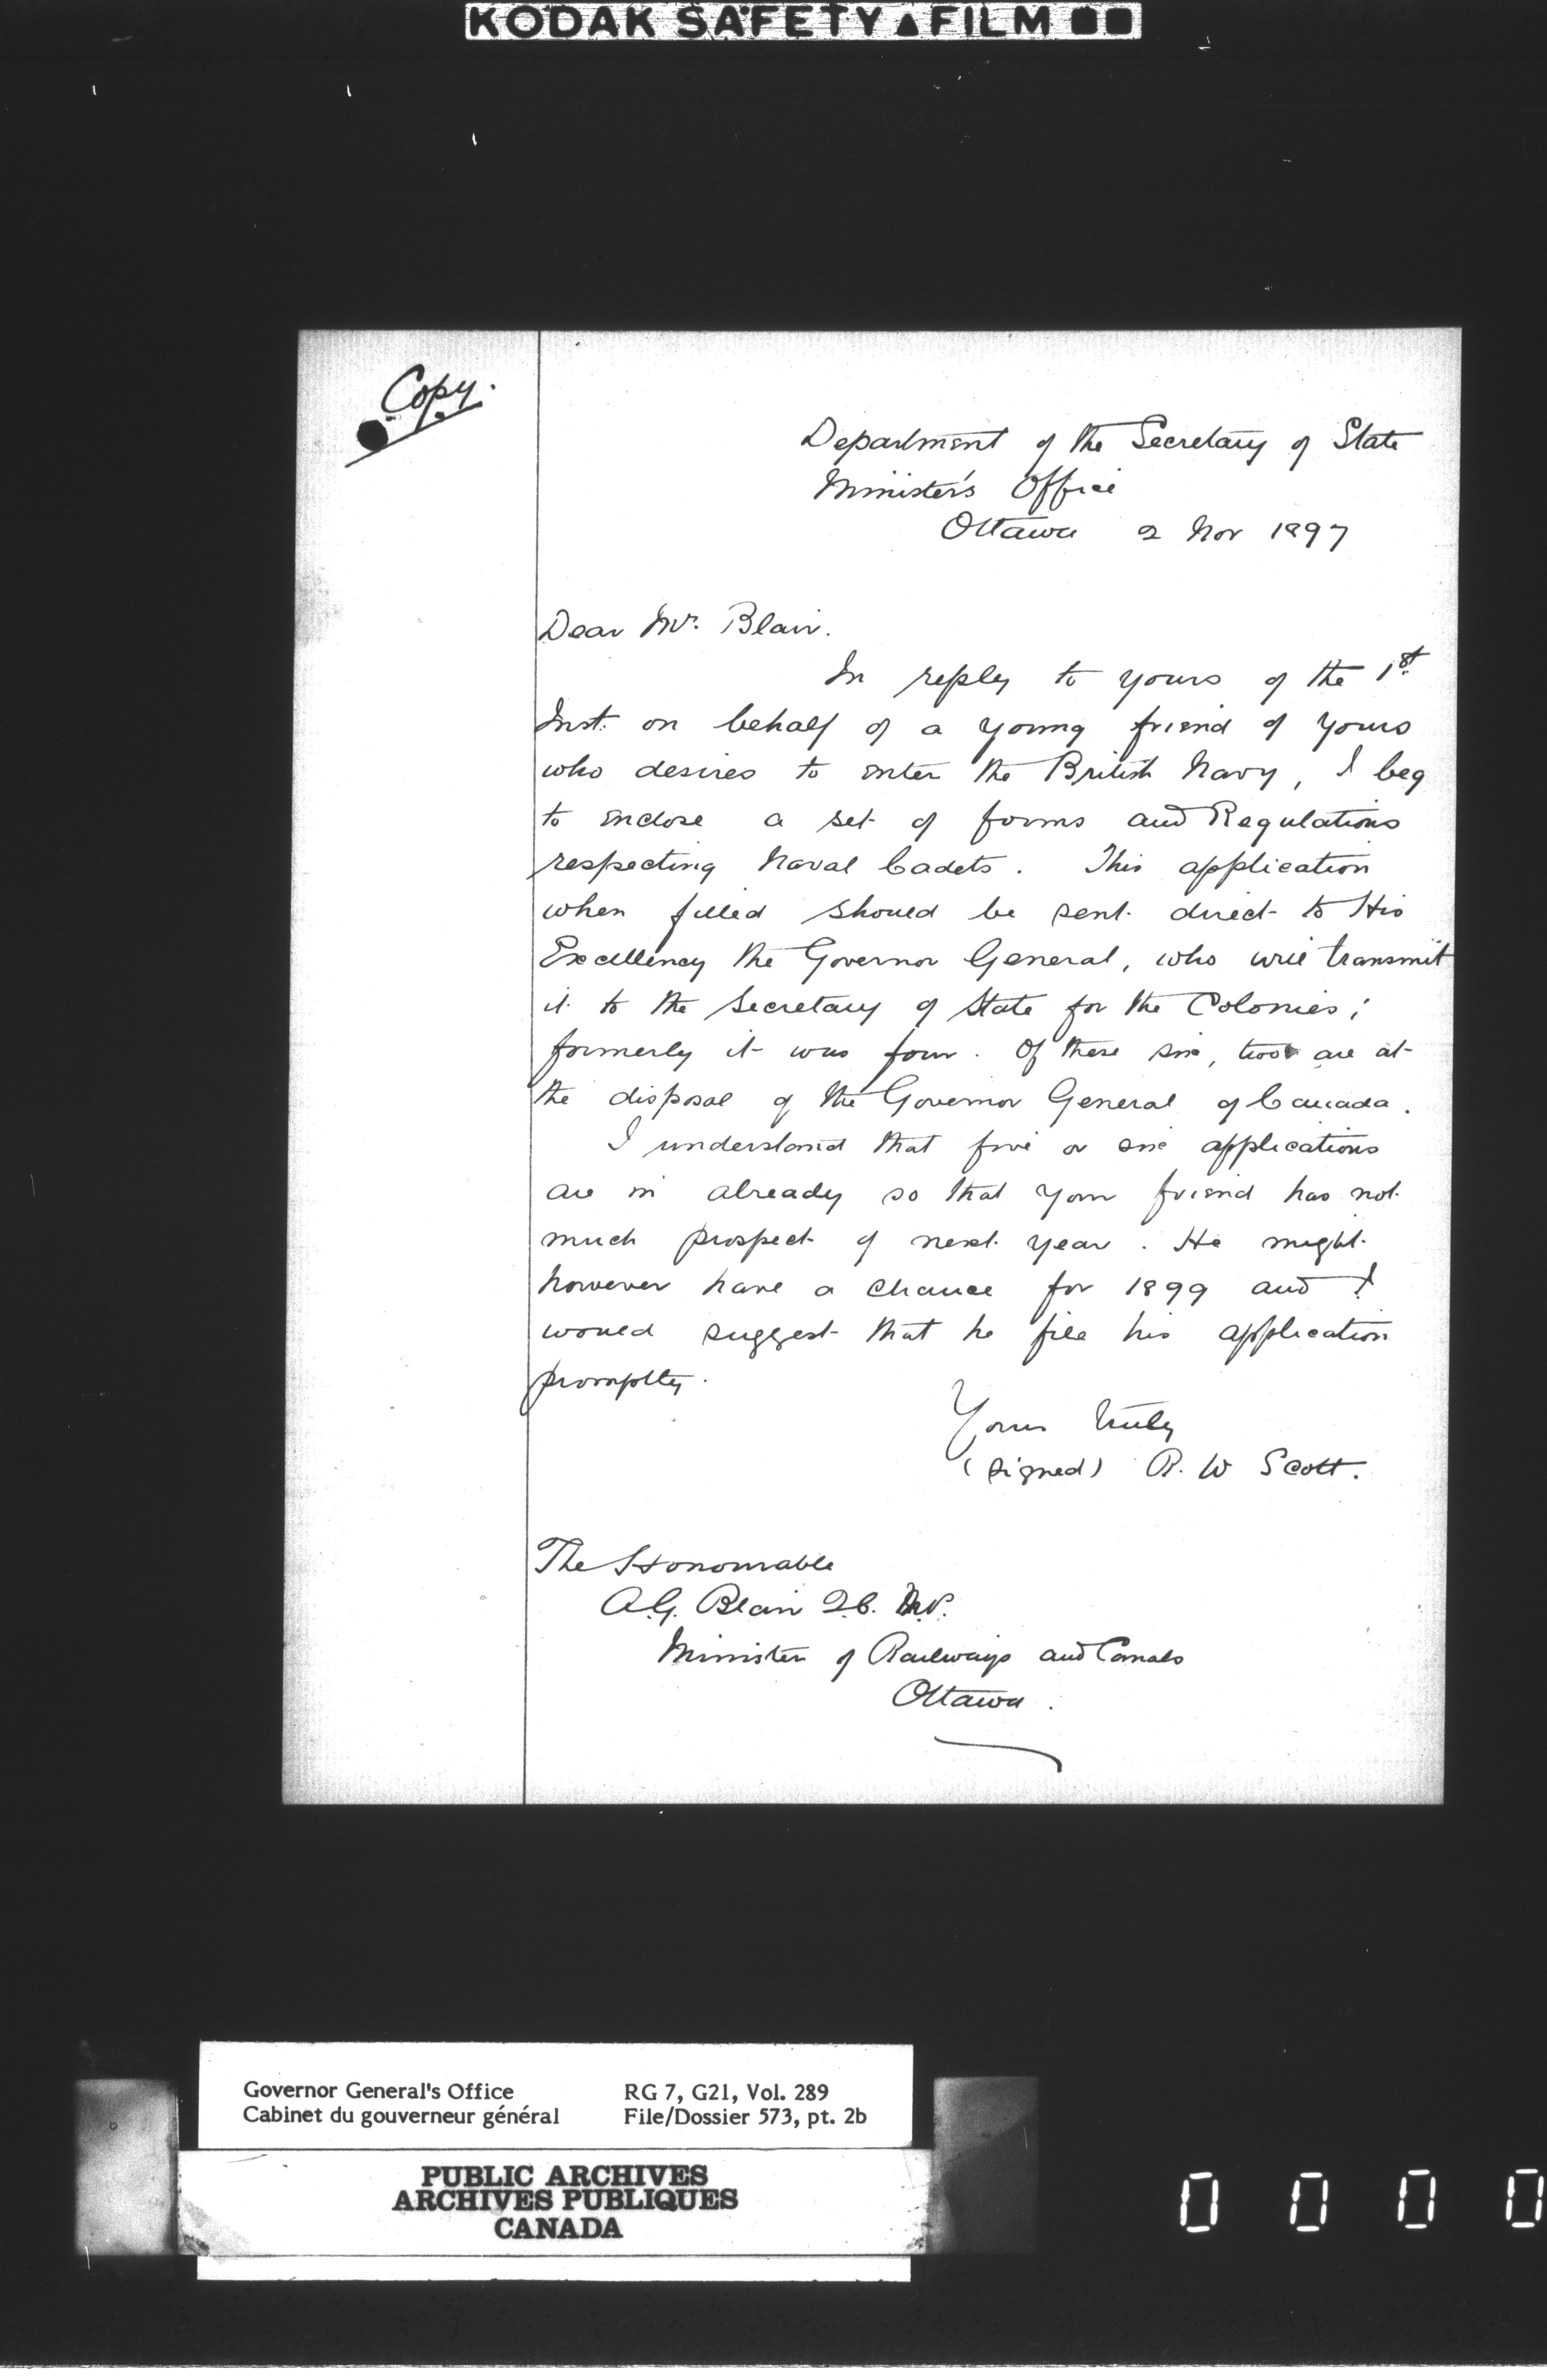 KODAK SAFETY FILM
Copy.
Department of the Secretary of State
Minister's Office
Ottawa 2 Nov 1897
Dear Mr. Blair.
In reply to yours of the 1st.
Inst. on behalf of a young friend of yours
who desires to enter the British Navy, I beg
to enclose a set of forms and Regulations
respecting Naval Cadets. This application
when filled should be sent direct to His
Excellency the Governor General, who will transmit
it to the Secretary of State for the Colonies;
formerly it was four. Of these six, two are at
the disposal of the Governor General of Canada.
I understand that five or six applications
are in already so that your friend has not
much prospect of next year. He might
however have a chance for 1899 and I
would suggest that he file his application
promptly.
Yours truly
(signed) R. W Scott.
The Honourable
A.G. Blair Q.C. M.P.
Minister of Railways and Canals
Ottawa.
Governor General's Office RG 7, G21, Vol. 289
Cabinet du gouverneur général File/Dossier 573, pt. 2b
PUBLIC ARCHIVES
ARCHIVES PUBLIQUES
CANADA
0 0 0 0